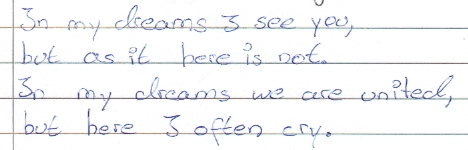 In my dreams I see you,
but as it here is not.
In my dreams we are united,
but here I often cry.